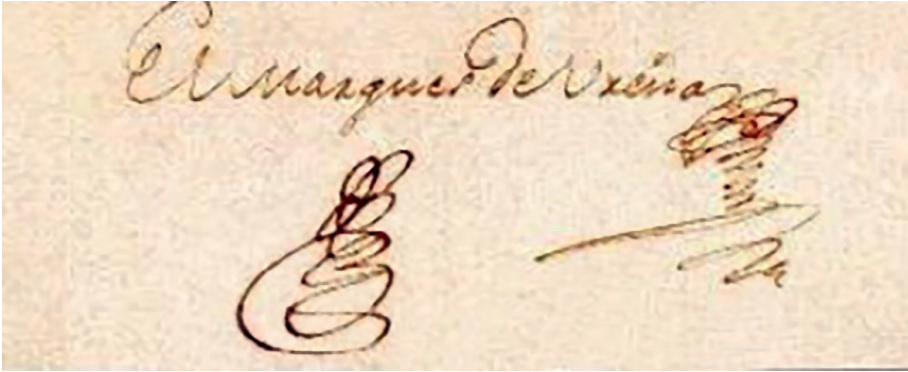 El Marques de Ureña